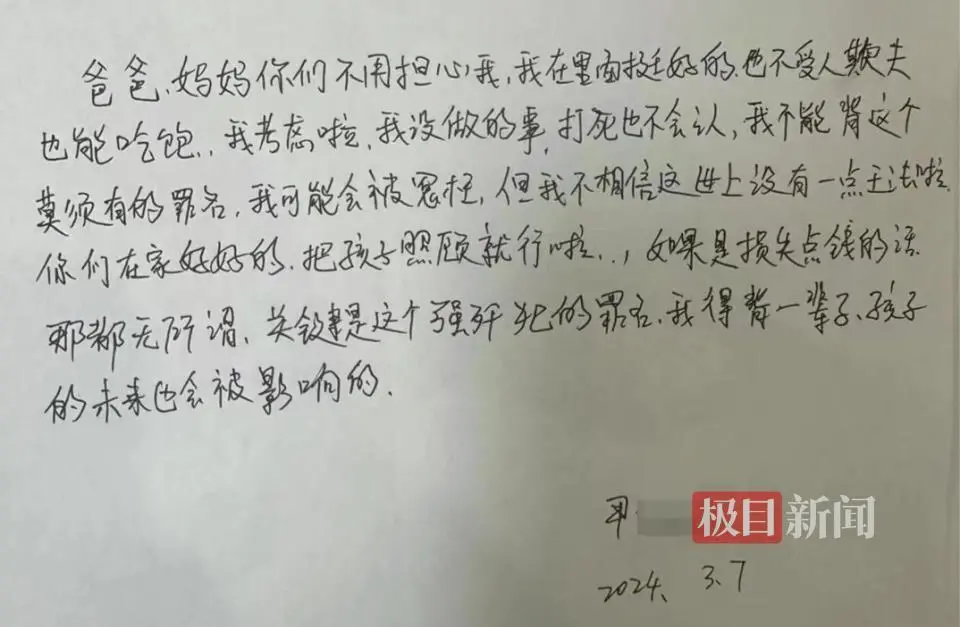 爸爸、妈妈你们不用担心我,我在里面挺好的.也不受人欺夫
也能吃饱..我考虑啦,我没做的事,打死也不会认,我不能背这个
莫须有的罪名,我可能会被冤枉,但我不相信这世上没有一点王法啦.
你们在家好好的.把孩子照顾就行啦..,如果是损失点钱的话
那都无所谓、关键是这个强奸犯的罪名、我得背一辈子、孩子
的未来也会被影响的.
极目新闻
2024、3.7